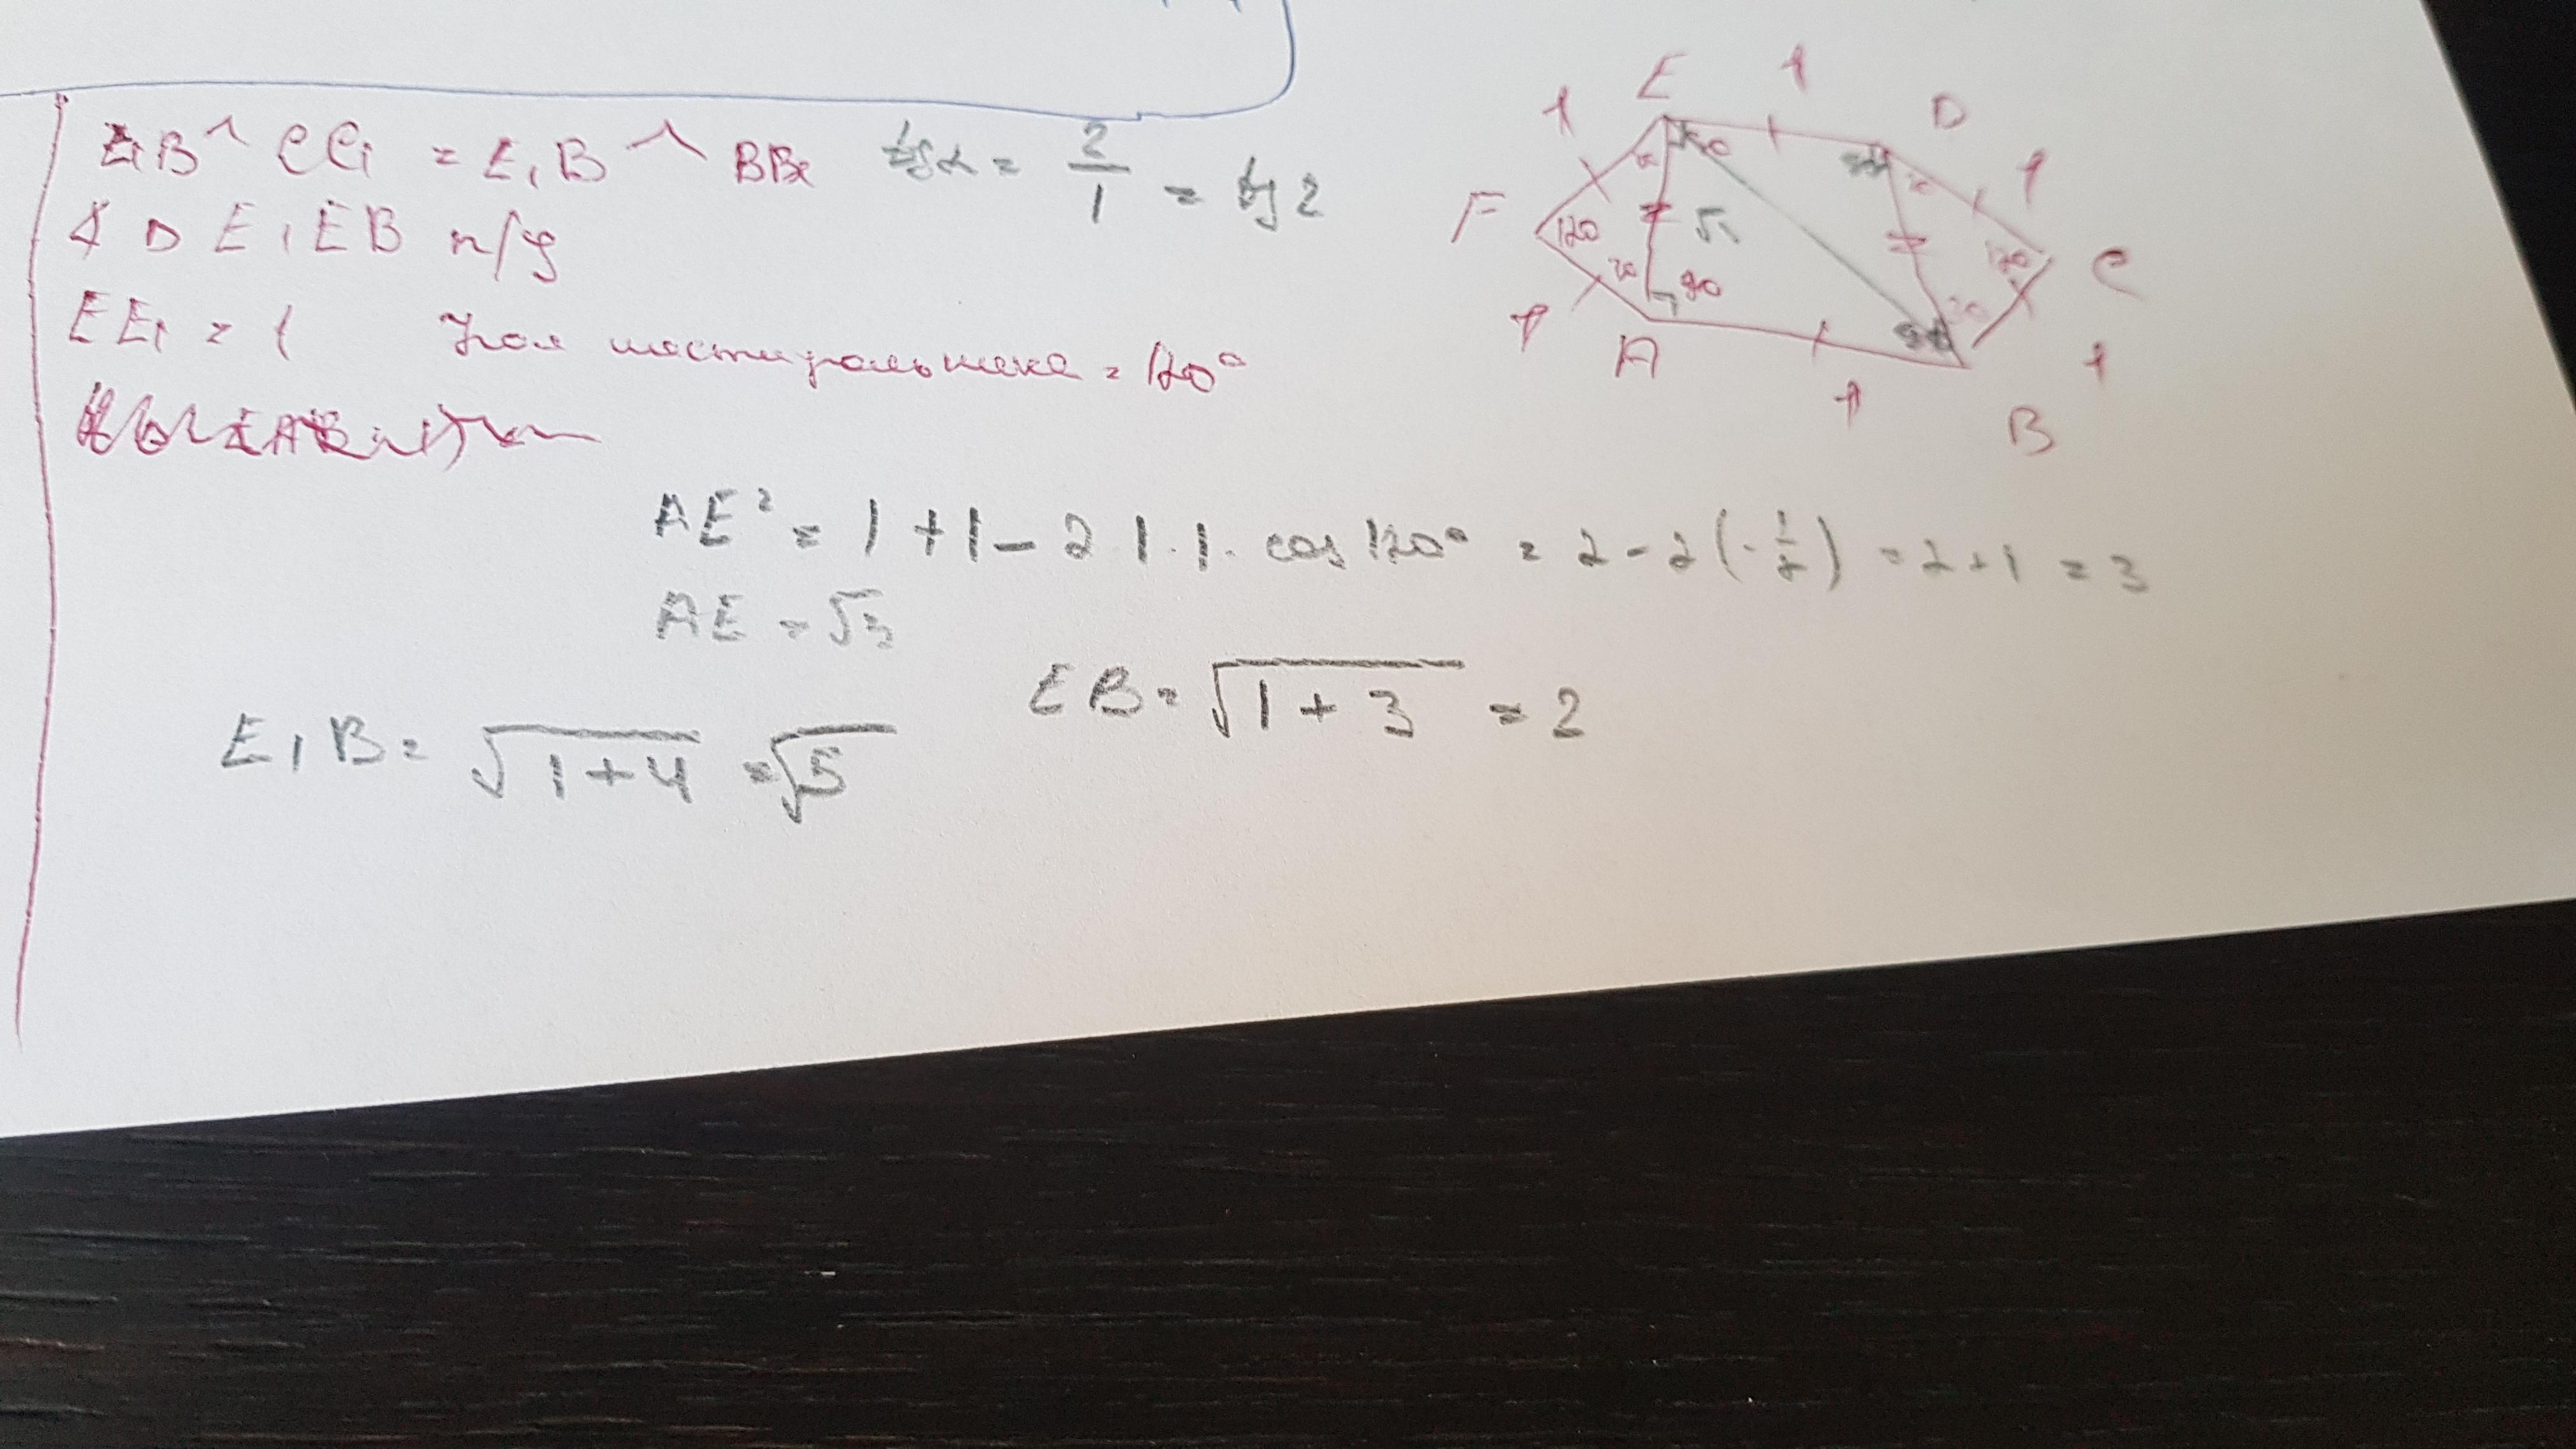 E₁B ^ CC₁ = E₁B ^ BB₁ tgα = 2/1 = tg 2
∢ Δ E₁EB п/у
EE₁ = 1 Угол шестиугольника = 120°
AE² = 1 + 1 − 2 · 1 · 1 · cos 120° = 2 − 2(−1/2) = 2 + 1 = 3
AE = √3
EB = √(1 + 3) = 2
E₁B = √(1 + 4) = √5
E 1 D
1 1
F 120 √3 120 C
30 90 30
1 A 1 B 1